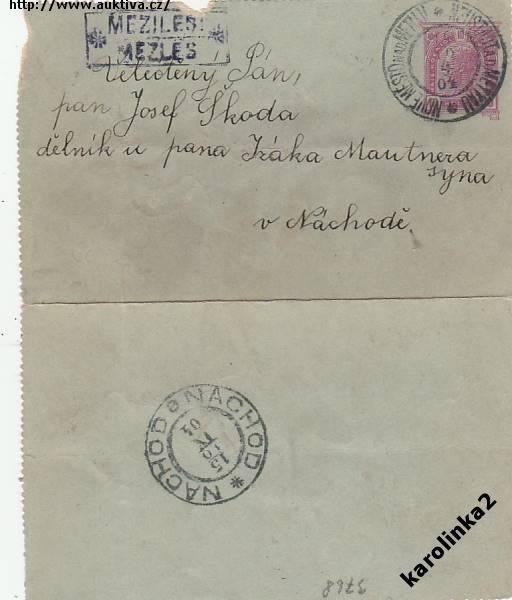 http://www.auktiva.cz
MEZILESÍ
MEZLES
Veledtěný Pán,
pan Josef Škoda
dělník u pana Izáka Mautnera
syna
v Náchodě.
NEUSTADT A.D. METTAU * NOVÉ MĚSTO NAD METUJÍ *
04
NACHOD * NÁCHOD *
04
3768
karolinka2